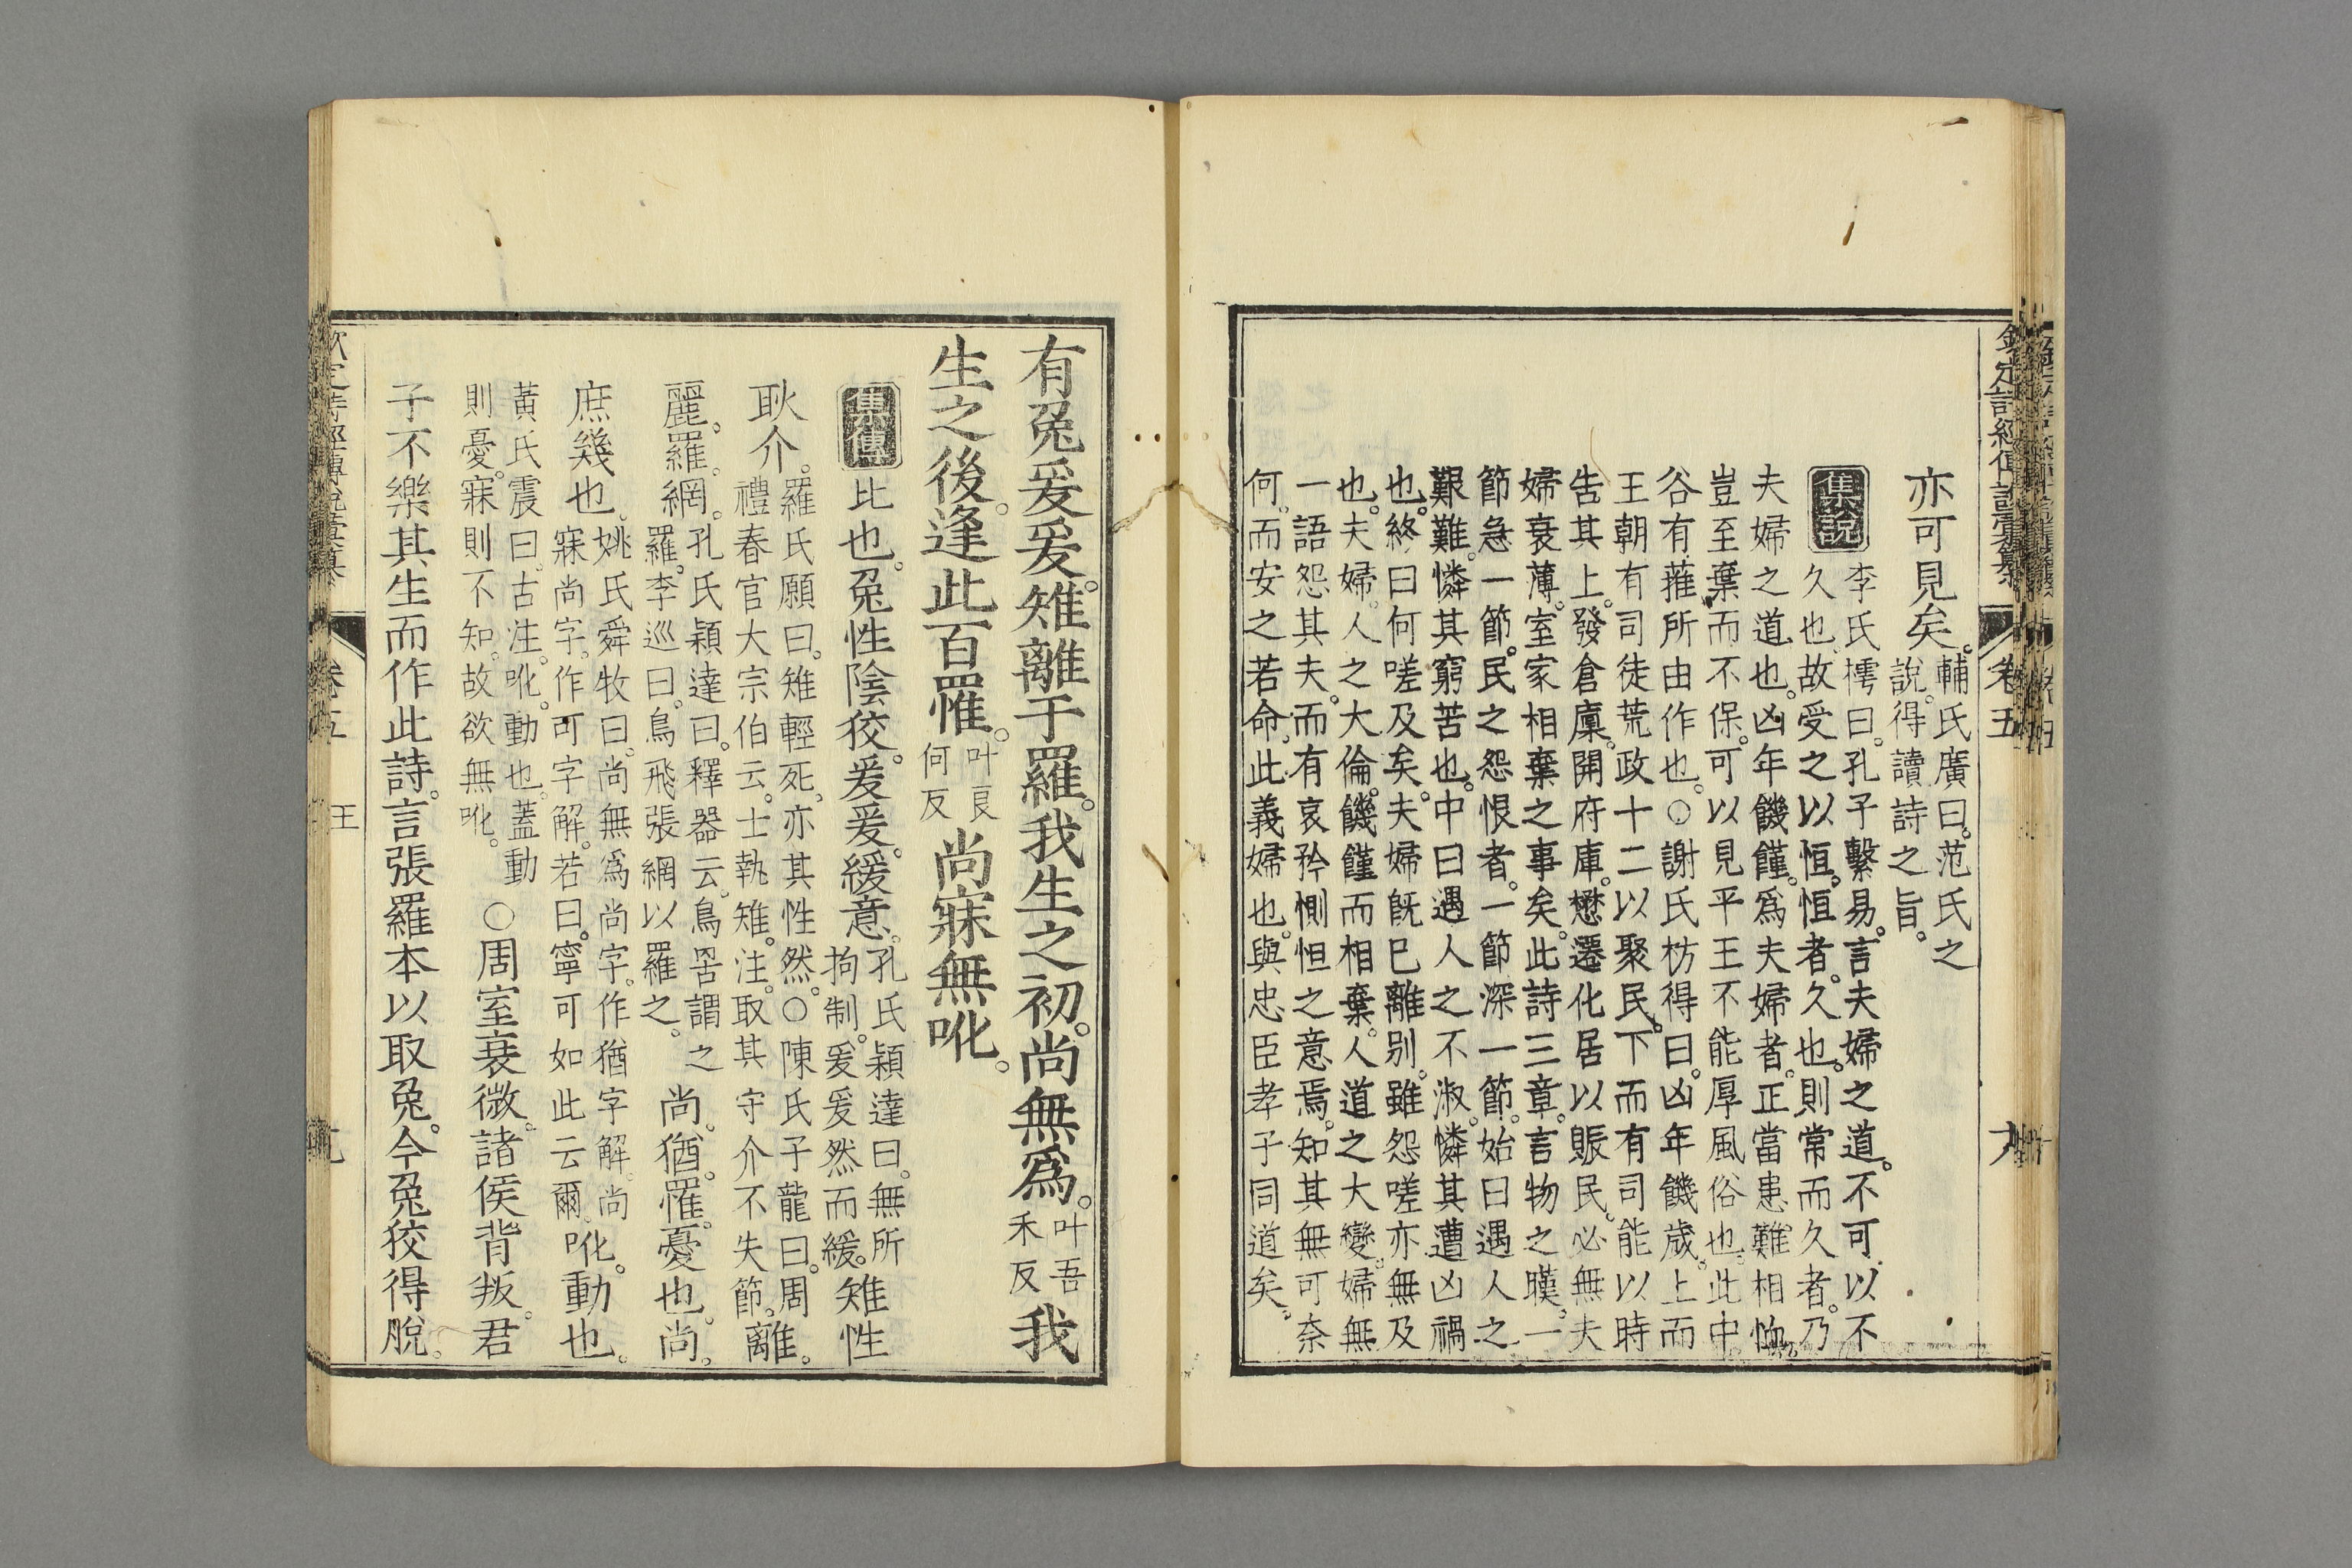 欽定詩經傳說彙纂
卷五
亦可見矣。輔氏廣曰。范氏之
說。得讀詩之旨。
集說
李氏樗曰。孔子繫易。言夫婦之道。不可以不
久也。故受之以恒。恒者。久也。則常而久者。乃
夫婦之道也。凶年饑饉。爲夫婦者。正當患難相恤
豈至棄而不保。可以見平王不能厚風俗也。此中
谷有蓷所由作也。○謝氏枋得曰。凶年饑歲。上而
王朝有司徒荒政十二以聚民。下而有司能以時
告其上。發倉廩。開府庫。懋遷化居以賑民。必無夫
婦衰薄。室家相棄之事矣。此詩三章。言物之暵。一
節急一節。民之怨恨者。一節深一節。始曰遇人之
艱難。憐其窮苦也。中曰遇人之不淑。憐其遭凶禍
也。終曰何嗟及矣。夫婦旣已離别。雖怨嗟亦無及
也。夫婦。人之大倫。饑饉而相棄。人道之大變。婦無
一語怨其夫。而有哀矜惻怛之意焉。知其無可奈
何。而安之若命。此義婦也。與忠臣孝子同道矣。
有兔爰爰。雉離于羅。我生之初。尚無爲。叶吾禾反我
生之後。逢此百罹。叶良何反尚寐無吪。
集傳
比也。兔性陰狡。爰爰。緩意。孔氏穎達曰。無所
拘制。爰爰然而緩。雉性
耿介。羅氏願曰。雉輕死。亦其性然。○陳氏子龍曰。周
禮春官大宗伯云。士執雉。注。取其守介不失節。離。
麗。羅。網。孔氏穎達曰。釋器云。鳥罟謂之
羅。李巡曰。鳥飛張網以羅之。尚。猶。罹。憂也。尚。
庶幾也。姚氏舜牧曰。尚無爲尚字。作猶字解。尚
寐尚字。作可字解。若曰。寧可如此云爾。吪。動也。
黃氏震曰。古注。吪。動也。蓋動
則憂。寐則不知。故欲無吪。○周室衰微。諸侯背叛。君
子不樂其生而作此詩。言張羅本以取兔。今兔狡得脫。
卷五
王